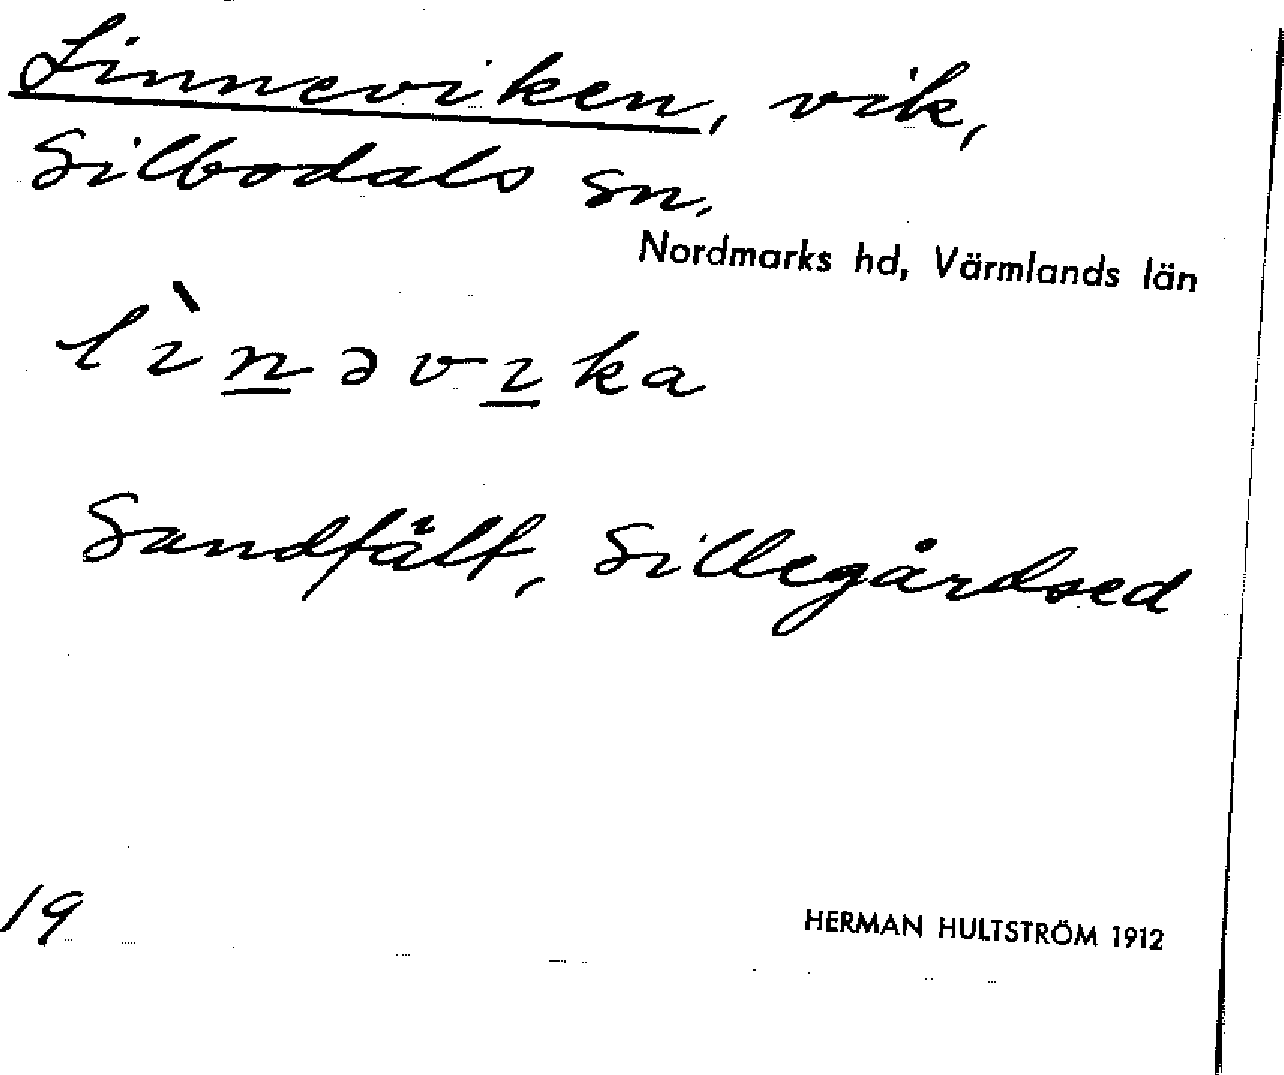 Linneviken, vik,
Silbodals sn.
Nordmarks hd, Värmlands län
lìnəvıka
Sundfält, Sillegårdsed
19
HERMAN HULTSTRÖM 1912